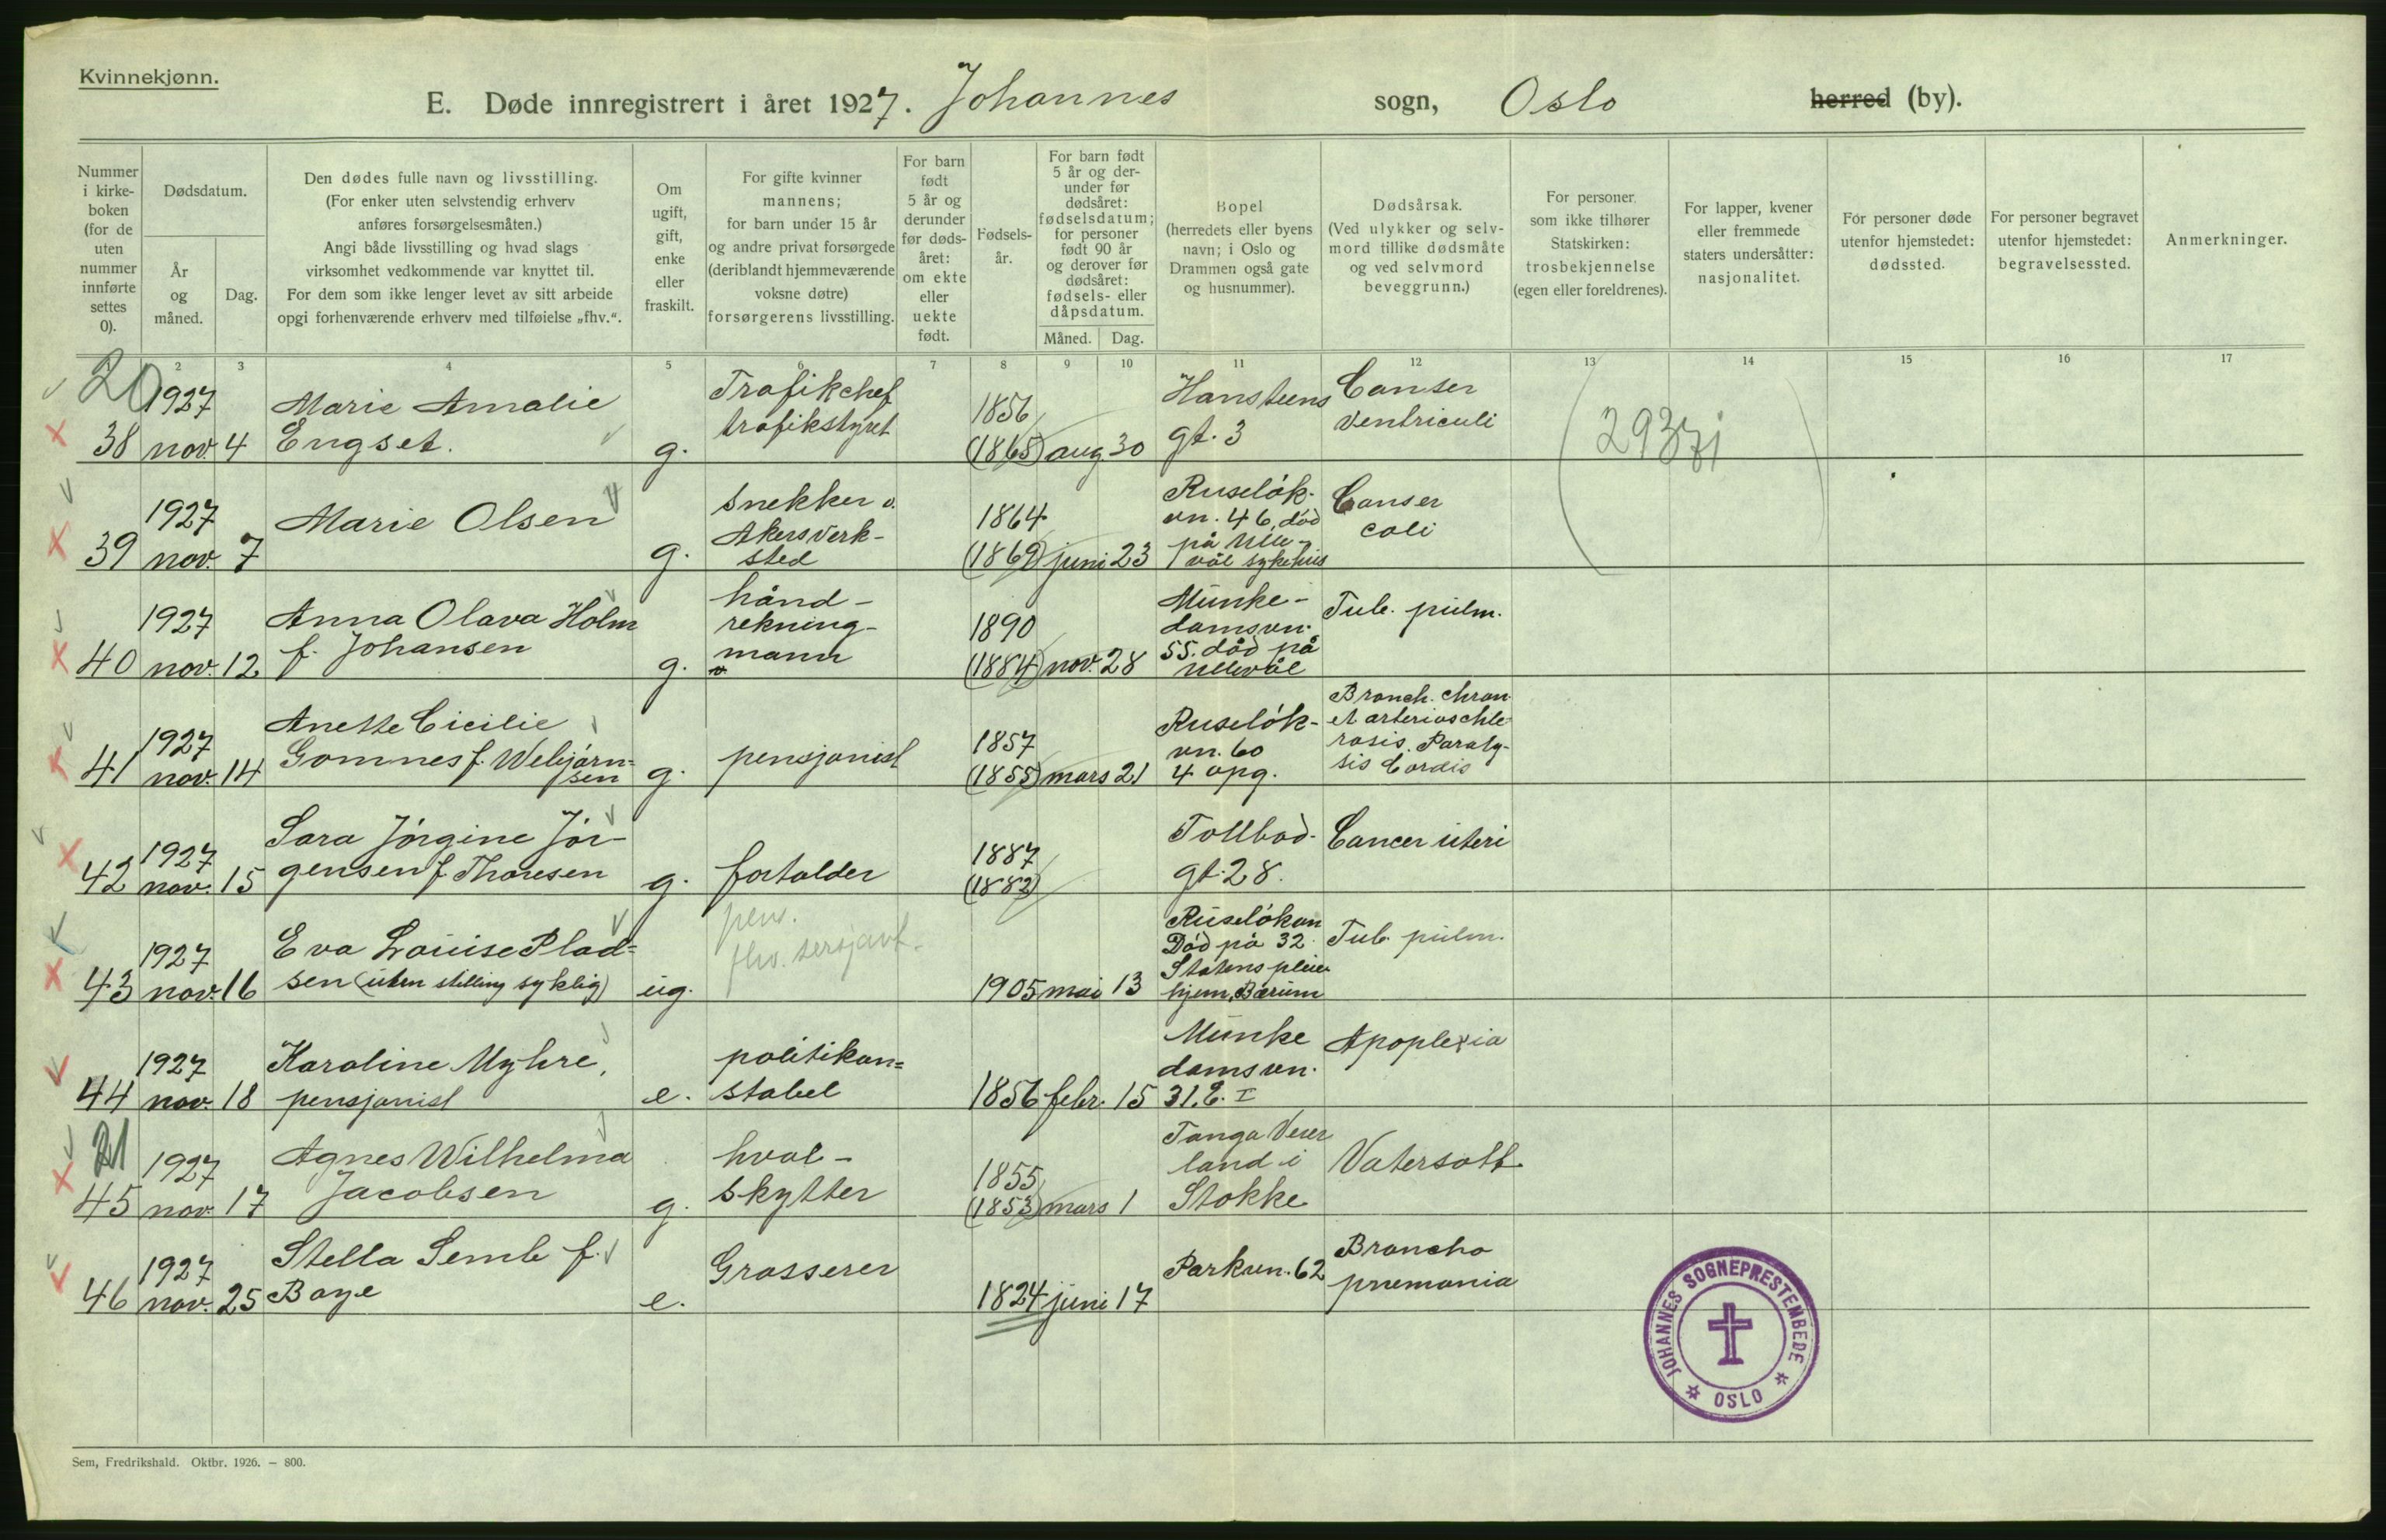 Kvinnekjønn.
E. Døde innregistrert i året 1927. Johannes sogn, Oslo herred (by).
Nummer i kirke-boken (for de uten nummer innførte settes 0).
Dødsdatum.
År og måned.
Dag.
Den dødes fulle navn og livsstilling.
(For enker uten selvstendig erhverv
anføres forsørgelsesmåten.)
Angi både livsstilling og hvad slags
virksomhet vedkommende var knyttet til.
For dem som ikke lenger levet av sitt arbeide
opgi forhenværende erhverv med tilføielse „fhv.“.
Om ugift, gift, enke eller fraskilt.
For gifte kvinner
mannens;
for barn under 15 år
og andre privat forsørgede
(deriblandt hjemmeværende
voksne døtre)
forsørgerens livsstilling.
For barn født 5 år og derunder før døds-året: om ekte eller uekte født.
Fødsels-år.
For barn født
5 år og der-
under før
dødsåret:
fødselsdatum;
for personer
født 90 år
og derover før
dødsåret:
fødsels- eller
dåpsdatum.
Måned. Dag.
Bopel
(herredets eller byens
navn; i Oslo og
Drammen også gate
og husnummer).
Dødsårsak.
(Ved ulykker og selv-
mord tillike dødsmåte
og ved selvmord
beveggrunn.)
For personer
som ikke tilhører
Statskirken:
trosbekjennelse
(egen eller foreldrenes).
For lapper, kvener
eller fremmede
staters undersåtter:
nasjonalitet.
For personer døde
utenfor hjemstedet:
dødssted.
For personer begravet
utenfor hjemstedet:
begravelsessted.
Anmerkninger.
2 3 4 5 6 7 8 9 10 11 12 13 14 15 16 17
20
38 1927 nov. 4 Marie Amalie Engset. g. Trafikchef trafikstyret 1856 (1865) aug 30 Hansteens gt. 3 Canser ventriculi
2937j
39 1927 nov. 7 Marie Olsen g. Snekker v. Akersverk-sted 1864 (1869) juni 23 Ruseløk-vn. 46, død på Ulle-vål sykehus Canser coli
40 1927 nov. 12 Anna Olava Holm f. Johansen g. hånd-rekning-mann 1890 (1884) nov. 28 Munke-damsvn. 55. død på Ullevål Tub. pulm.
41 1927 nov. 14 Anette Cicilie Gomnes f. Webjørn-sen g. pensjonist 1857 (1855) mars 21 Ruseløk-vn. 60 4 opg. Bronch. chron. et arterioschle-rosis. Paraly-sis Cordis
42 1927 nov. 15 Sara Jørgine Jør-gensen f. Thoresen g. fortolder 1887 (1882) Tollbod-gt. 28. Cancer uteri
43 1927 nov. 16 Eva Louise Plad=sen (uten stilling syklig) ug. pens. fhv. sersjant. 1905 mai 13 Ruseløkvn 32. Død på Statens pleie hjem, Bærum Tub. pulm.
44 1927 nov. 18 Karoline Myhre, pensjonist e. politikon=stabel 1856 febr. 15 Munke damsvn. 31. I Apoplexia
21
45 1927 nov. 17 Agnes Wilhelma Jacobsen g. hval-skytter 1855 (1853) mars 1 land i Stokke Vatersott
46 1927 nov. 25 Stella Semb f. Boye e. Grosserer 1824 juni 17 Parkvn. 62 Broncho pnemonia
JOHANNES SOGNEPRESTEMBEDE
OSLO
Sem, Fredrikshald. Oktbr. 1926. – 800.